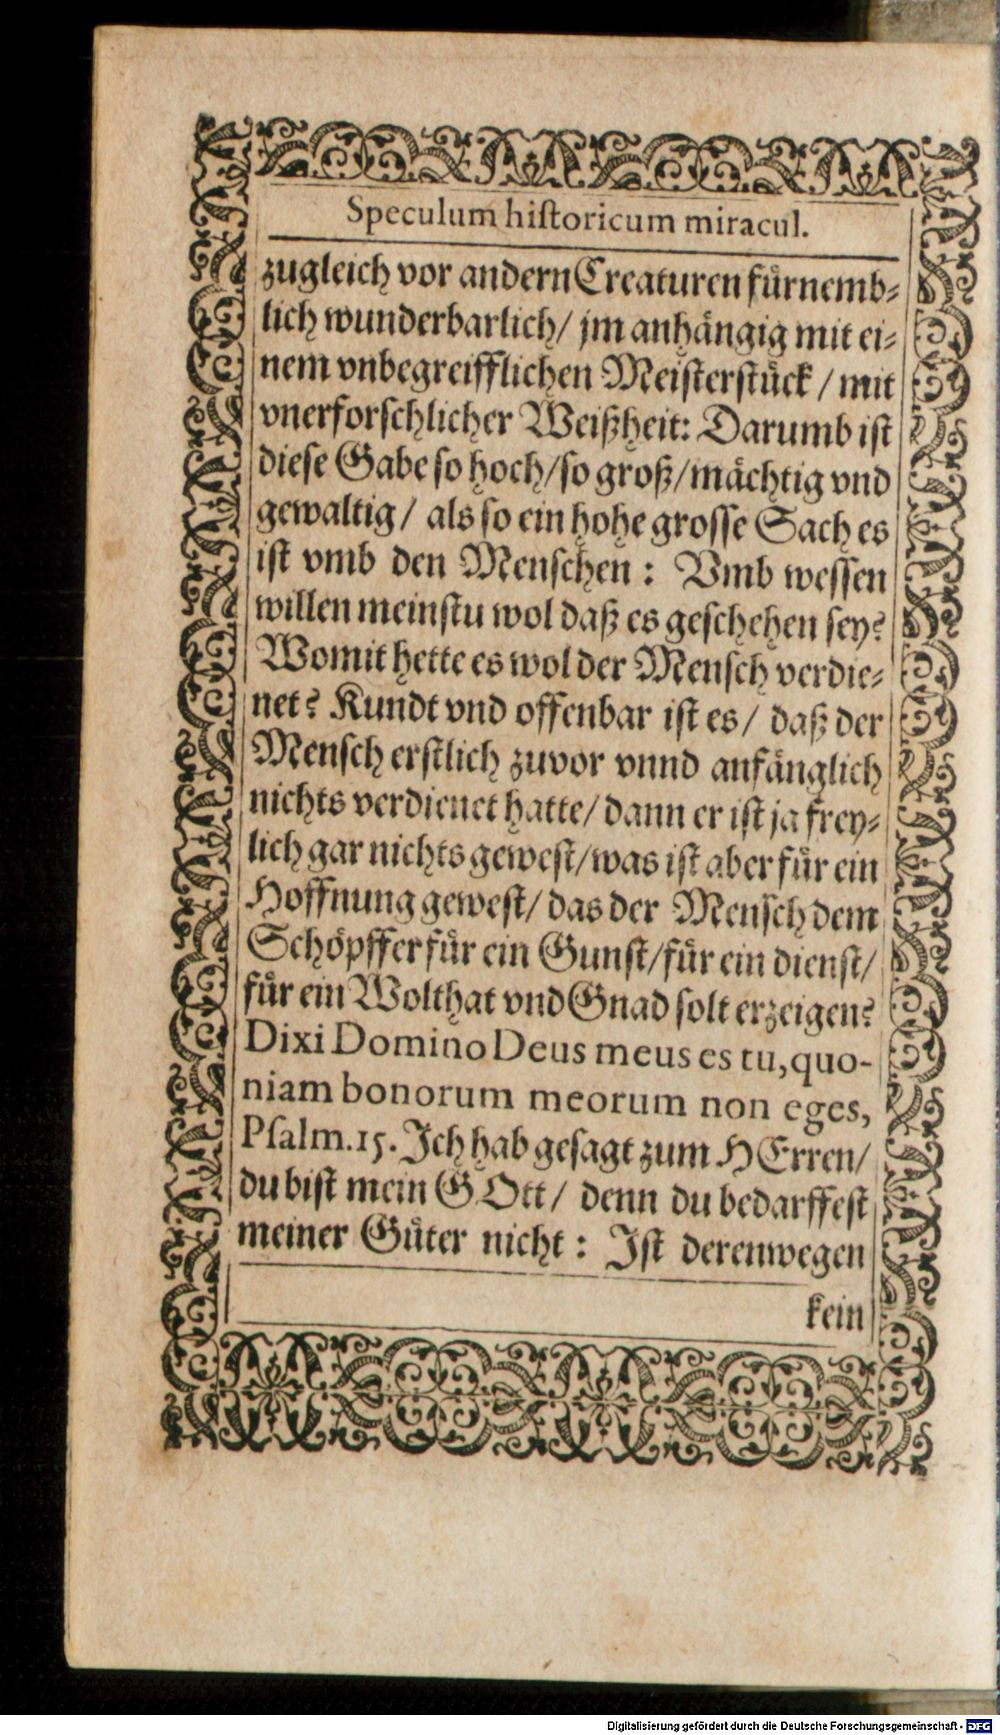 Speculum hiſtoricum miracul.
zugleich vor andern Creaturen fuͤrnemb⸗
lich wunderbarlich/ jm anhaͤngig mit ei⸗
nem vnbegreifflichen Meiſterſtuͤck / mit
vnerforſchlicher Weißheit: Darumb iſt
dieſe Gabe ſo hoch/ſo groß/maͤchtig vnd
gewaltig/ als ſo ein hohe groſſe Sach es
iſt vmb den Menſchen : Vmb weſſen
willen meinſtu wol daß es geſchehen ſey?
Womit hette es wol der Menſch verdie⸗
net? Kundt vnd offenbar iſt es/ daß der
Menſch erſtlich zuvor vnnd anfaͤnglich
nichts verdienet hatte/ dann er iſt ja frey⸗
lich gar nichts geweſt/was iſt aber fuͤr ein
Hoffnung geweſt/ das der Menſch dem
Schoͤpffer fuͤr ein Gunſt/fuͤr ein dienſt/
fuͤr ein Wolthat vnd Gnad ſolt erzeigen?
Dixi Domino Deus meus es tu, quo-
niam bonorum meorum non eges,
Pſalm.15. Jch hab geſagt zum HErren/
du biſt mein GOtt/ denn du bedarffeſt
meiner Guͤter nicht : Jſt derenwegen
kein
Digitalisierung gefördert durch die Deutsche Forschungsgemeinschaft - DFG